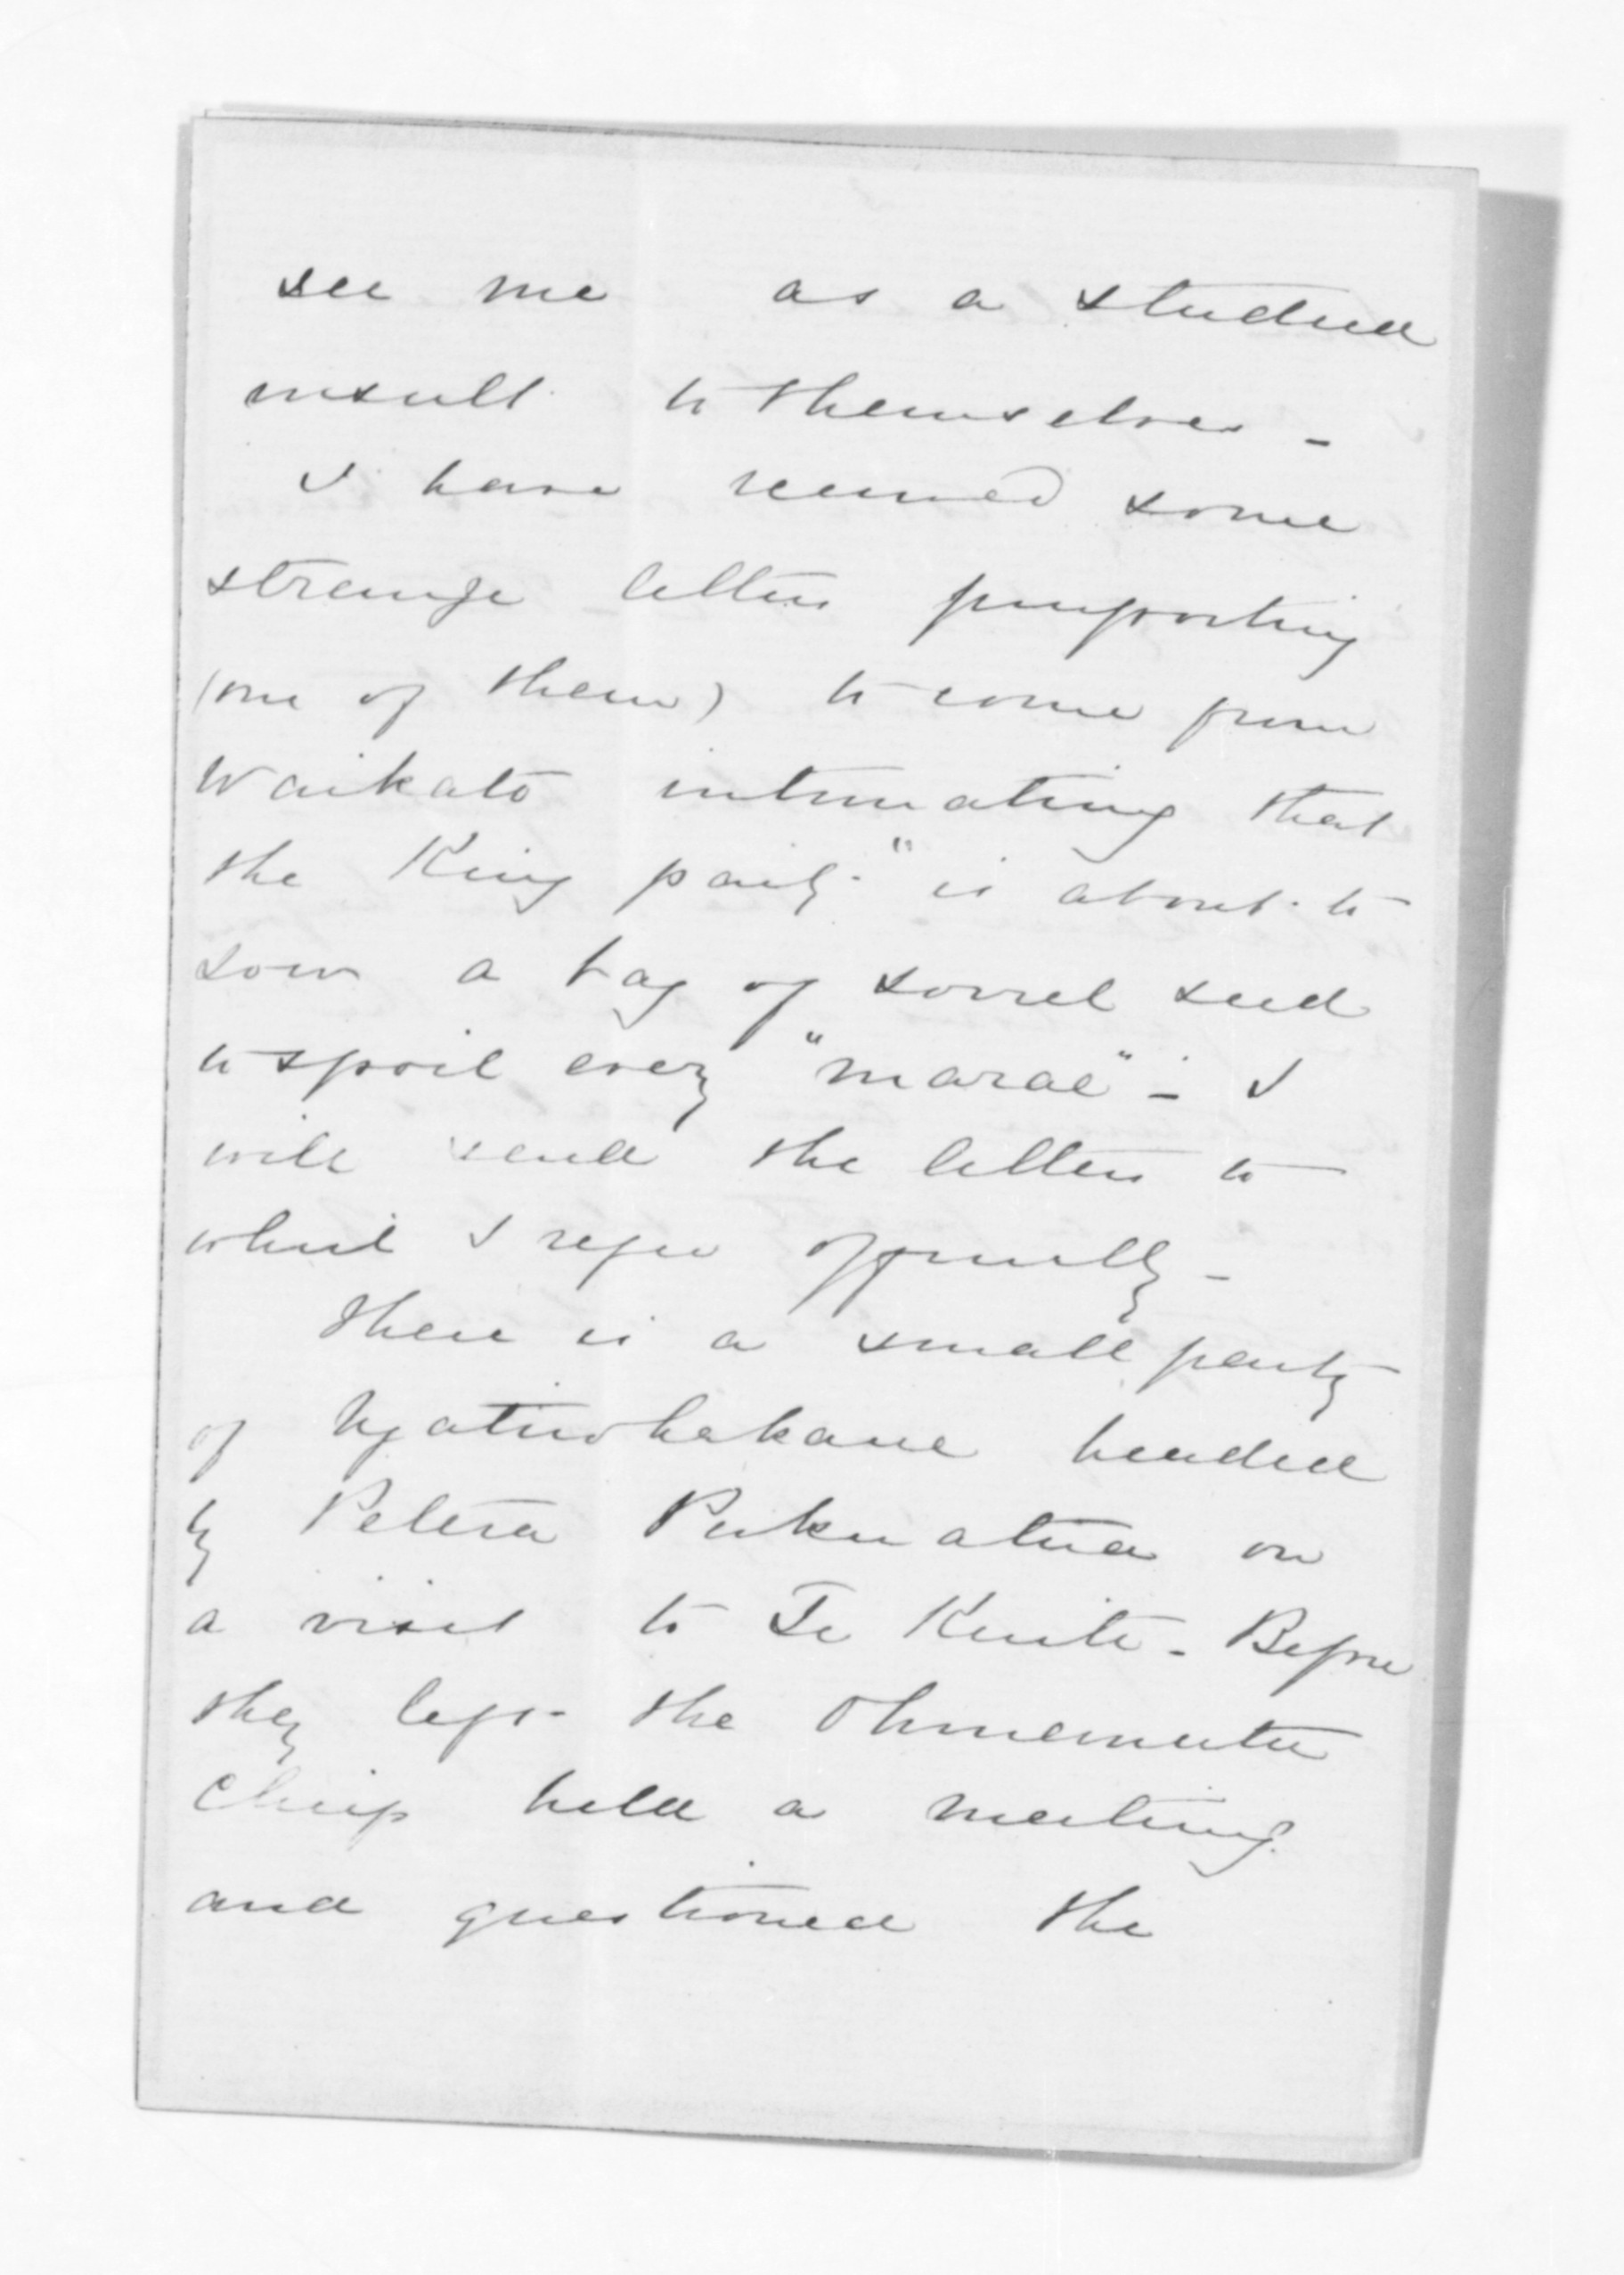 see me as a studied
insult to themselves -
I have received some
strange letters purporting
(one of them) to come from
Waikato intimating that
the King party "is about to
sow a bag of sorrel seed
to spoil every "marae" - I
will send the letters to
which I refer officially -
There is a small party
of Ngatiwhakaue headed
by Petera Pukuatua on
a visit to Te Kuiti - Before
they left the Ohinemutu
Chiefs held a meeting
and questioned the